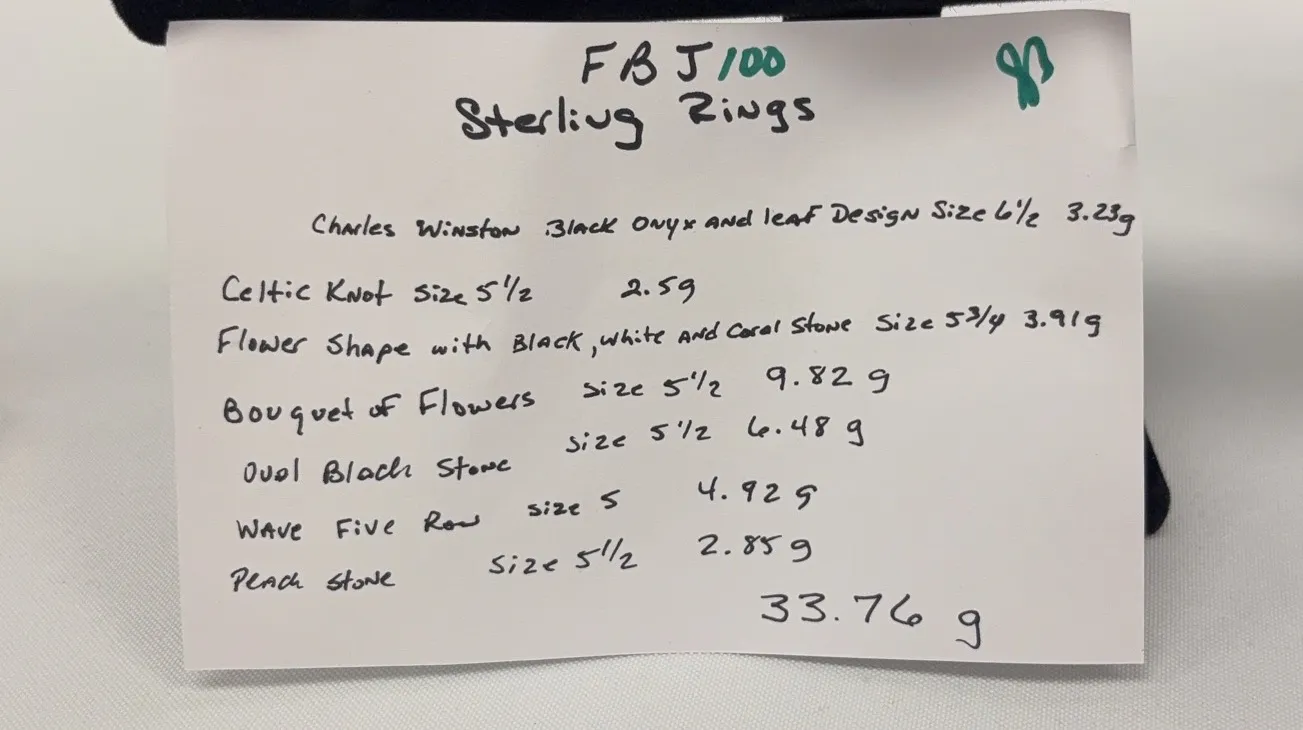 FBJ100
Sterling Rings
Charles Winston Black Onyx and leaf Design Size 6 1/2 3.23g
Celtic Knot size 5 1/2 2.59
Flower Shape with Black, white and Coral Stone Size 5 3/4 3.91g
Bouquet of Flowers size 5 1/2 9.82 g
Oval Black Stone size 5 1/2 6.48 g
Wave Five Row size 5 4.92 g
Peach Stone size 5 1/2 2.85 g
33.76 g